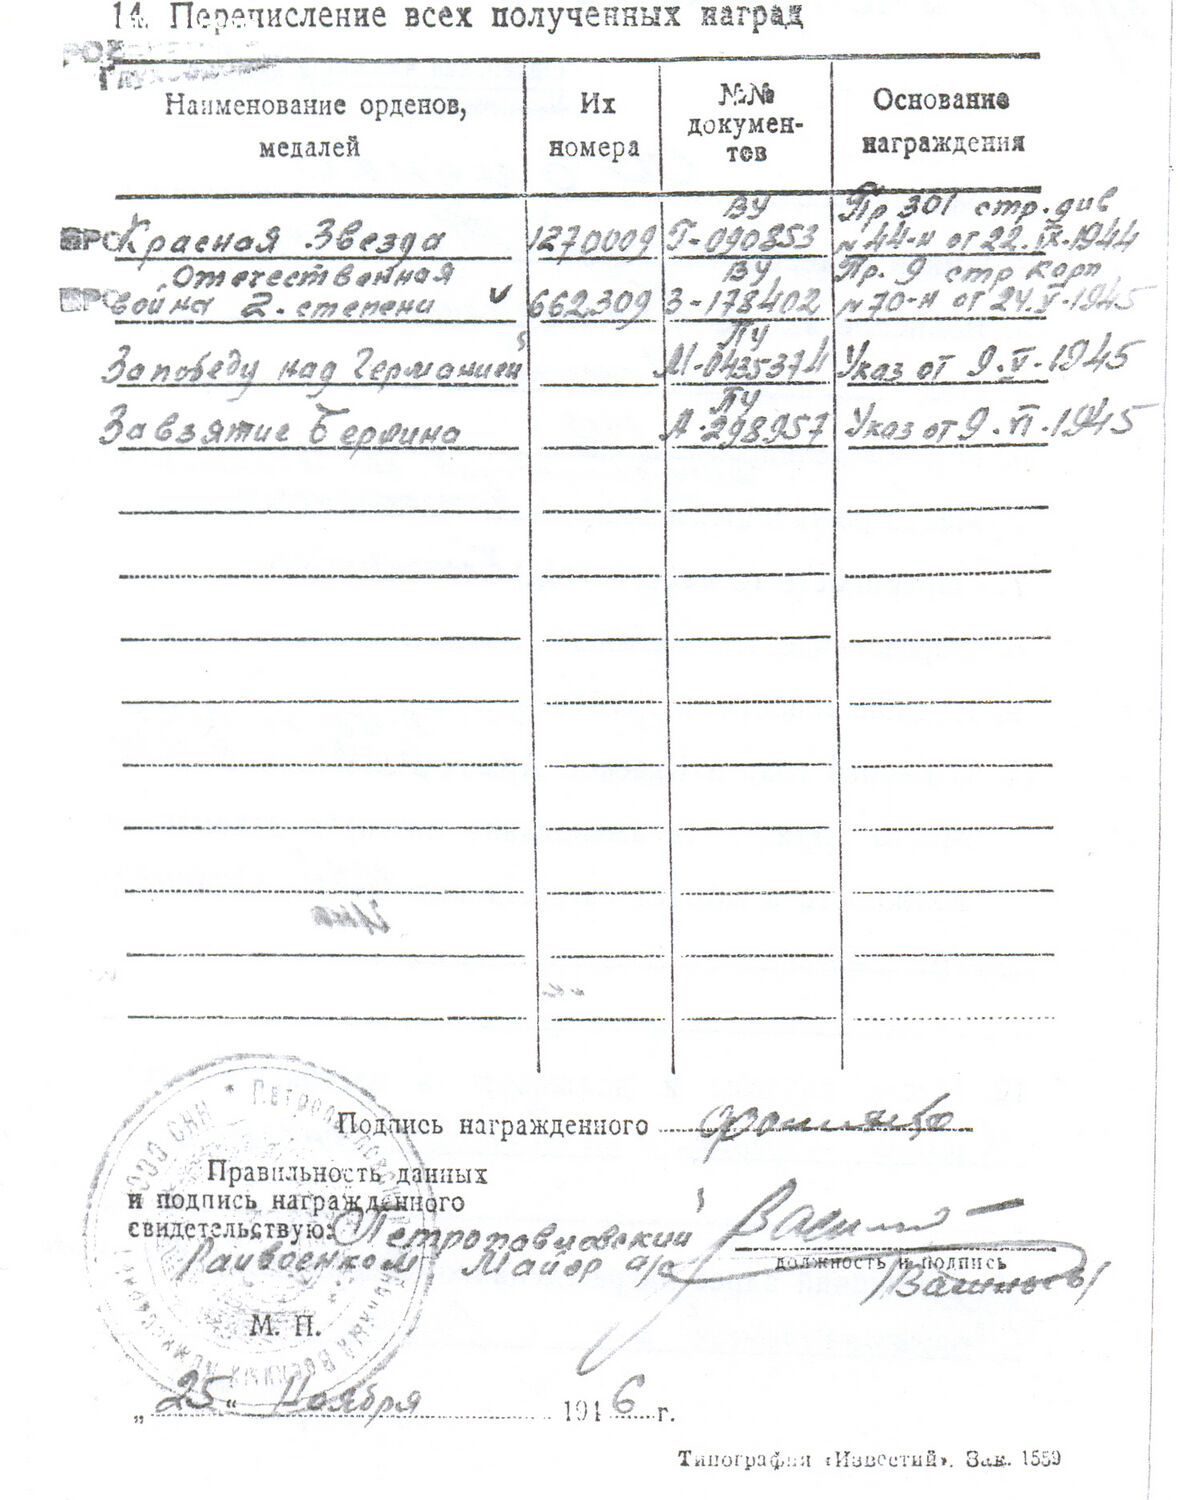 14. Перечисление всех полученных наград
Наименование орденов, медалей
Их номера
№№ докумен-тов
Основание награждения
Красная Звезда 1270009 ВУ Г-090853 Пр 301 стр. див № 44-н от 22.IX.1944
Отечественная война 2. степени v 662309 ВУ З-178402 Пр. 9 стр корп № 70-н от 24.V.1945
За победу над Германией ПУ М-0435374 Указ от 9.V.1945
За взятие Берлина ПУ А-298957 Указ от 9.VI.1945
Подпись награжденного
Правильность данных
и подпись награжденного
свидетельствую: Петропавловский
Райвоенком Майор а/с
должность и подпись
М. П.
„25“ Ноября 1946 г.
Типография «Известий». Зак. 1559